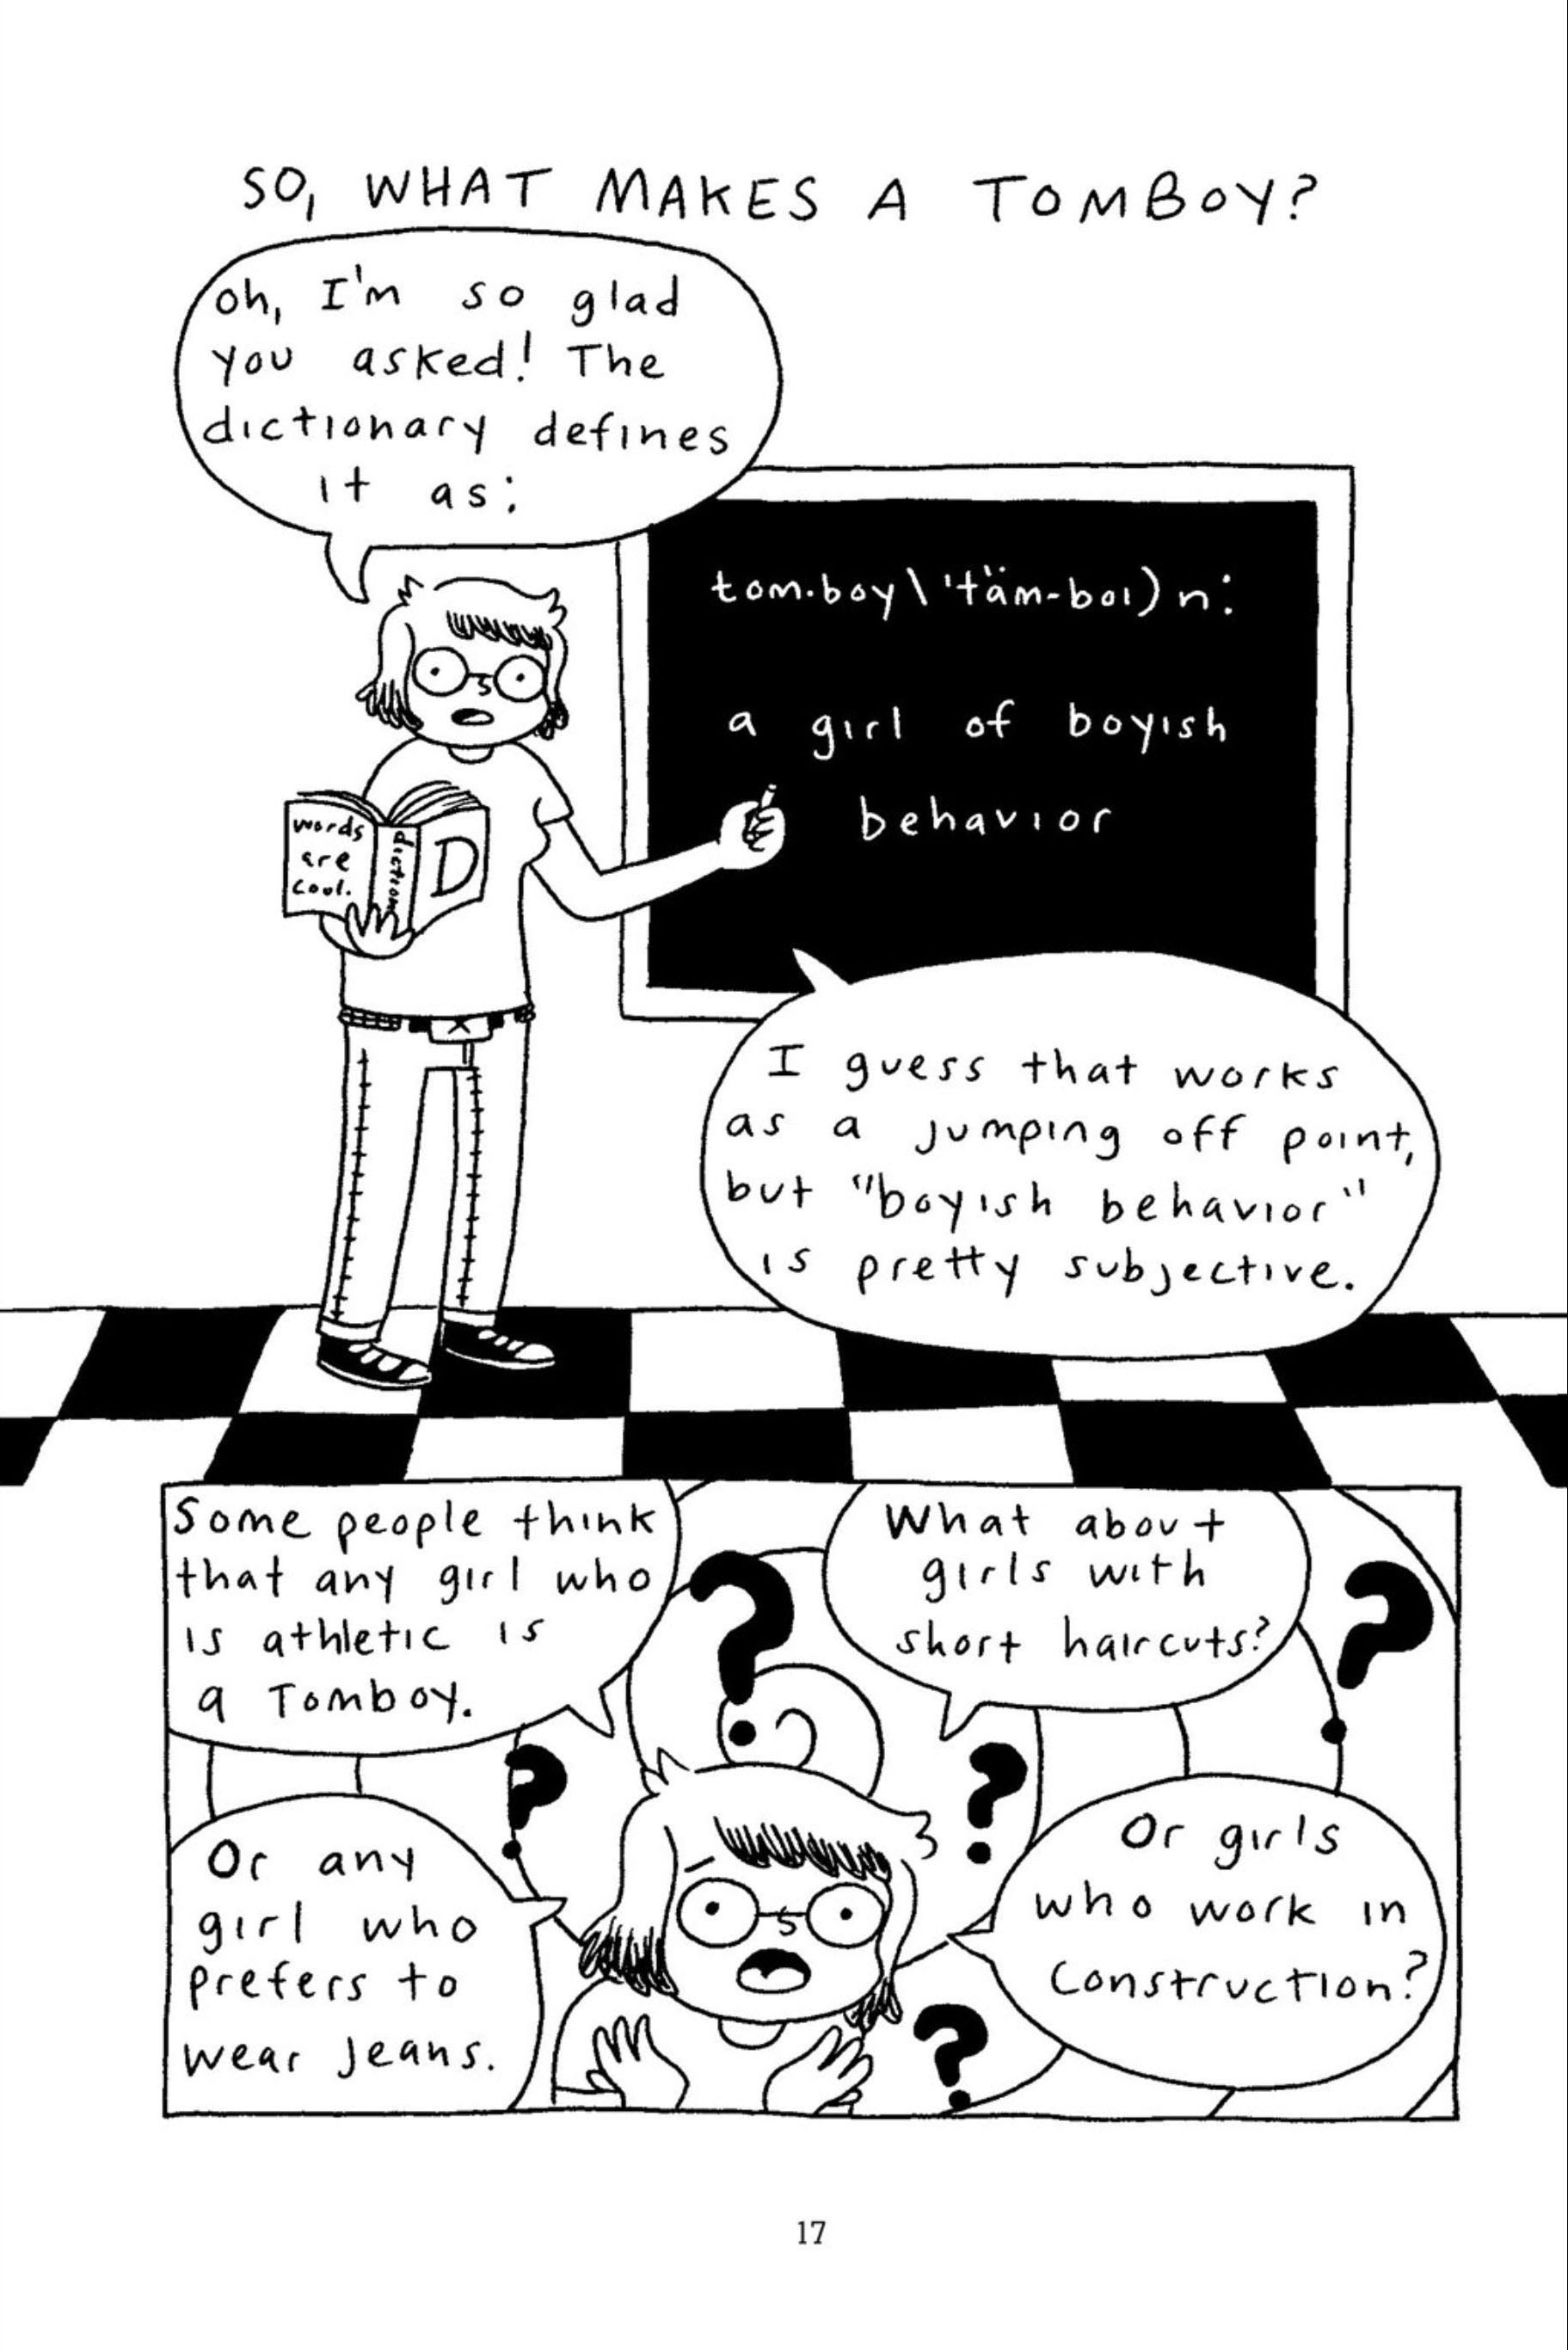 SO, WHAT MAKES A TOMBOY?
oh, I'm so glad
you asked! The
dictionary defines
it as:
tom•boy\'täm-boi) n:
a girl of boyish
behavior
words
are
cool.
diction
D
I guess that works
as a jumping off point,
but "boyish behavior"
is pretty subjective.
Some people think
that any girl who
is athletic is
a Tomboy.
What about
girls with
short haircuts?
?
?
?
?
Or any
girl who
prefers to
wear jeans.
Or girls
who work in
construction?
?
17